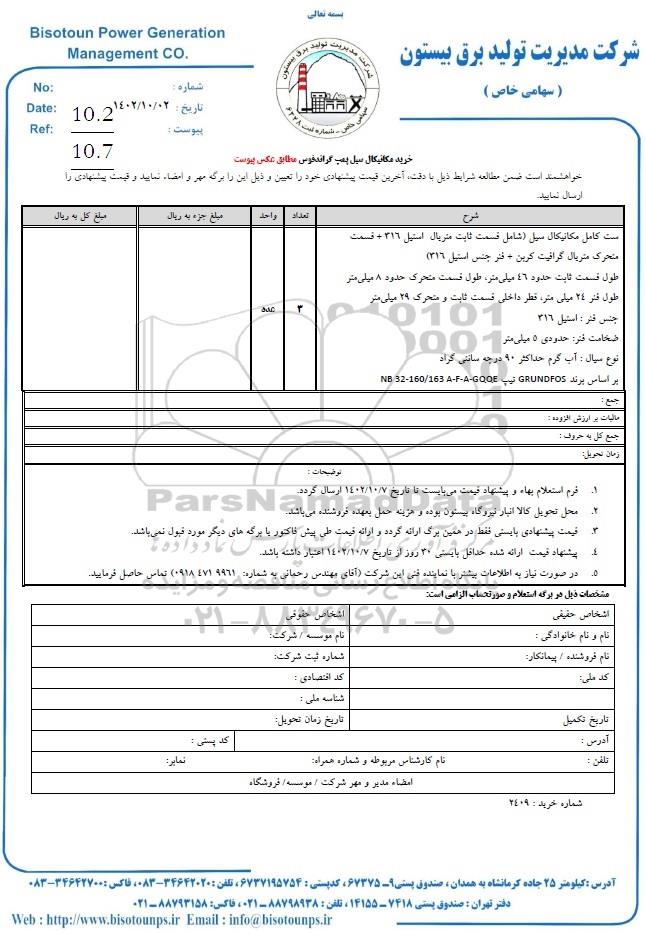 بسمه تعالی
Bisotoun Power Generation
Management CO.
شرکت مدیریت تولید برق بیستون
( سهامی خاص )
شرکت مدیریت تولید برق بیستون
سهامی خاص - شماره ثبت ۶۳۲۸
No: شماره :
Date: 10.2 تاریخ : ۱۴۰۲/۱۰/۰۲
Ref: 10.7 پیوست :
خرید مکانیکال سیل پمپ گراندفوس مطابق عکس پیوست
خواهشمند است ضمن مطالعه شرایط ذیل با دقت، آخرین قیمت پیشنهادی خود را تعیین و ذیل این را برگه مهر و امضاء نمایید و قیمت پیشنهادی را
ارسال نمایید.
شرح تعداد واحد مبلغ جزء به ریال مبلغ کل به ریال
ست کامل مکانیکال سیل (شامل قسمت ثابت متریال استیل ۳۱۶ + قسمت
متحرک متریال گرافیت کربن + فنر جنس استیل ۳۱۶)
طول قسمت ثابت حدود ۴۶ میلی‌متر، طول قسمت متحرک حدود ۸ میلی‌متر
طول فنر ۲۴ میلی متر، قطر داخلی قسمت ثابت و متحرک ۲۹ میلی‌متر
جنس فنر : استیل ۳۱۶ ۳ عدد
ضخامت فنر: حدودی ۵ میلی‌متر
نوع سیال : آب گرم حداکثر ۹۰ درجه سانتی گراد
بر اساس برند GRUNDFOS تیپ NB 32-160/163 A-F-A-GQQE
جمع :
مالیات بر ارزش افزوده :
جمع کل به حروف :
زمان تحویل:
توضیحات :
۱. فرم استعلام بهاء و پیشنهاد قیمت می‌بایست تا تاریخ ۱۴۰۲/۱۰/۷ ارسال گردد.
۲. محل تحویل کالا انبار نیروگاه بیستون بوده و هزینه حمل بعهده فروشنده می‌باشد.
۳. قیمت پیشنهادی بایستی فقط در همین برگ ارائه گردد و ارائه قیمت طی پیش فاکتور یا برگه های دیگر مورد قبول نمی‌باشد.
۴. پیشنهاد قیمت ارائه شده حداقل بایستی ۳۰ روز از تاریخ ۱۴۰۲/۱۰/۷ اعتبار داشته باشد.
۵. در صورت نیاز به اطلاعات بیشتر با نماینده فنی این شرکت (آقای مهندس رحمانی به شماره: ۹۹۶۱ ۴۷۱ ۰۹۱۸) تماس حاصل فرمایید.
مشخصات ذیل در برگه استعلام و صورتحساب الزامی است:
اشخاص حقیقی اشخاص حقوقی
نام و نام خانوادگی : نام موسسه / شرکت:
نام فروشنده / پیمانکار: شماره ثبت شرکت:
کد ملی: کد اقتصادی :
شناسه ملی :
تاریخ تکمیل تاریخ زمان تحویل:
آدرس : کد پستی :
تلفن : نام کارشناس مربوطه و شماره همراه: نمابر:
امضاء مدیر و مهر شرکت / موسسه/ فروشگاه
شماره خرید : ۲۴۰۹
ParsNamadData
پایگاه اطلاع رسانی مناقصه و مزایده
۰۲۱-۸۸۳۴۹۶۷۰-۵
آدرس :کیلومتر ۲۵ جاده کرمانشاه به همدان ، صندوق پستی۹ــ۶۷۳۷۵ ، کدپستی : ۶۷۳۷۱۹۵۷۵۴ ، تلفن : ۳۴۶۴۲۰۲۰-۰۸۳ ، فاکس : ۳۴۶۴۲۷۰۰-۰۸۳
دفتر تهران : صندوق پستی ۷۴۱۸ - ۱۴۱۵۵ ، تلفن : ۸۸۷۹۸۹۳۸ـ۰۲۱ ، فاکس : ۸۸۷۹۳۱۵۸ـ۰۲۱
Web : http://www.bisotounps.ir Email : info@bisotounps.ir